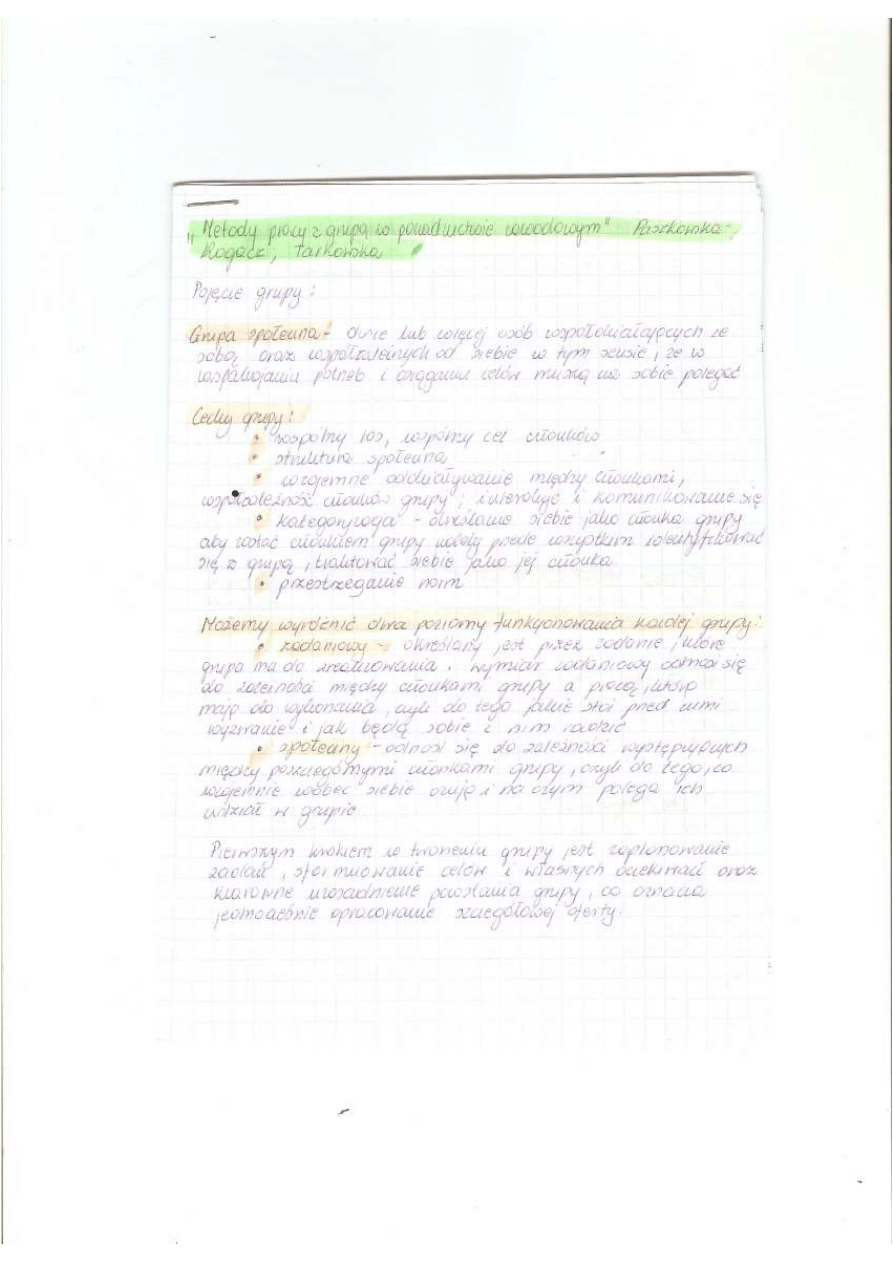 „Metody pracy z grupą w poradnictwie zawodowym" Paszkowska-
Rogacz, Tarkowska
Pojęcie grupy:
Grupa społeczna - dwie lub więcej osób współdziałających ze
sobą oraz współzależnych od siebie w tym sensie, że w
zaspakajaniu potrzeb i osiąganiu celów muszą na sobie polegać
Cechy grupy:
• wspólny los, wspólny cel członków
• struktura społeczna
• wzajemne oddziaływanie między członkami,
współzależność członków grupy; interakcje i komunikowanie się
• kategoryzacja - określanie siebie jako członka grupy
aby zostać członkiem grupy należy przede wszystkim identyfikować
się z grupą, traktować siebie jako jej członka
• przestrzeganie norm
Możemy wyróżnić dwa poziomy funkcjonowania każdej grupy:
• zadaniowy - określany jest przez zadanie, które
grupa ma do zrealizowania. Wymiar zadaniowy odnosi się
do zależności między członkami grupy a pracą, którą
mają do wykonania, czyli do tego jakie stoi przed nimi
wyzwanie i jak będą sobie z nim radzić
• społeczny - odnosi się do zależności występujących
między poszczególnymi członkami grupy, czyli do tego, co
wzajemnie wobec siebie czują i na czym polega ich
udział w grupie
Pierwszym krokiem w tworzeniu grupy jest zaplanowanie
zadań, sformułowanie celów i własnych oczekiwań oraz
klarowne uzasadnienie powstania grupy, co oznacza
jednocześnie opracowanie szczegółowej oferty.